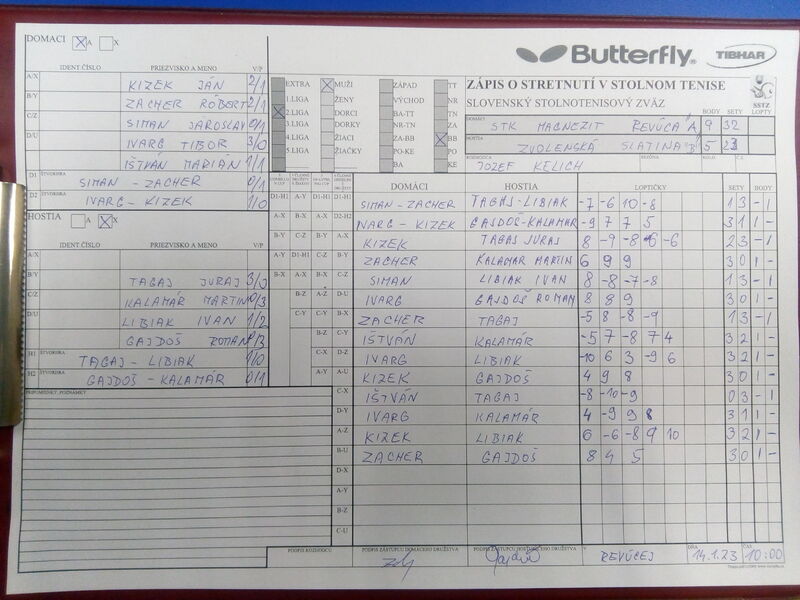 DOMACI A X
IDENT.ČÍSLO PRIEZVISKO A MENO V/P
A/X KIZEK JÁN 2/1
B/Y ZACHER RÓBERT 2/1
C/Z SIMAN JAROSLAV 0/1
D/U IVARG TIBOR 3/0
IŠTVÁN MARIÁN 1/1
D1 ŠTVORHRA
SIMAN - ZACHER 0/1
D2 IVARG - KIZEK 1/0
HOSTIA A X
IDENT.ČÍSLO PRIEZVISKO A MENO V/P
A/Y
B/Y TAGAJ JURAJ 3/0
C/Z KALAMÁR MARTIN 0/3
D/U LIBIAK IVAN 1/2
GAJDOŠ ROMAN 0/3
H1 ŠTVORHRA
TAGAJ - LIBIAK 1/0
H2 GAJDOŠ - KALAMÁR 0/1
PRIPOMIENKY, POZNÁMKY
Butterfly TIBHAR
EXTRA MUŽI ZÁPAD TT
1.LIGA ŽENY VÝCHOD NR
2.LIGA DORCI BA-TT TN
3.LIGA DORKY NR-TN ZA
4.LIGA ŽIACI ZA-BB BB
5.LIGA ŽIAČKY PO-KE PO
BA KE
ZÁPIS O STRETNUTÍ V STOLNOM TENISE
SLOVENSKÝ STOLNOTENISOVÝ ZVÄZ
SSTZ
BODY SETY LOPTY
DOMÁCI STK MAGNEZIT REVÚCA A 9 32
HOSTIA ZVOLENSKÁ SLATINA B 5 23
JOZEF KELICH
DOMÁCI HOSTIA LOPTIČKY SETY BODY
SIMAN - ZACHER TAGAJ-LIBIAK -7 -6 10 -8 1 3 - 1
IVARG - KIZEK GAJDOŠ-KALAMÁR -9 7 7 5 3 1 1 -
KIZEK TAGAJ JURAJ 8 -9 -8 6 -6 2 3 - 1
ZACHER KALAMAR MARTIN 6 9 9 3 0 1 -
SIMAN LIBIAK IVAN 8 -8 -7 -8 1 3 - 1
IVARG GAJDOŠ ROMAN 8 8 9 3 0 1 -
ZACHER TAGAJ -5 8 -8 -9 1 3 - 1
IŠTVÁN KALAMÁR -5 7 -8 7 4 3 2 1 -
IVARG LIBIAK -10 6 3 -9 6 3 2 1 -
KIZEK GAJDOŠ 4 9 8 3 0 1 -
C-X IŠTVÁN TAGAJ -8 -10 -9 0 3 - 1
D-Y IVARG KALAMÁR 4 -9 9 8 3 1 1 -
A-Z KIZEK LIBIAK 6 -6 -8 9 10 3 2 1 -
B-U ZACHER GAJDOŠ 8 4 5 3 0 1 -
D-X
A-Y
B-Z
C-U
PODPIS ROZHODCU PODPIS ZÁSTUPCU DOMÁCEHO DRUŽSTVA PODPIS ZÁSTUPCU HOSŤUJÚCEHO DRUŽSTVA V REVÚCEJ DŇA 14.1.23 ČAS 10:00